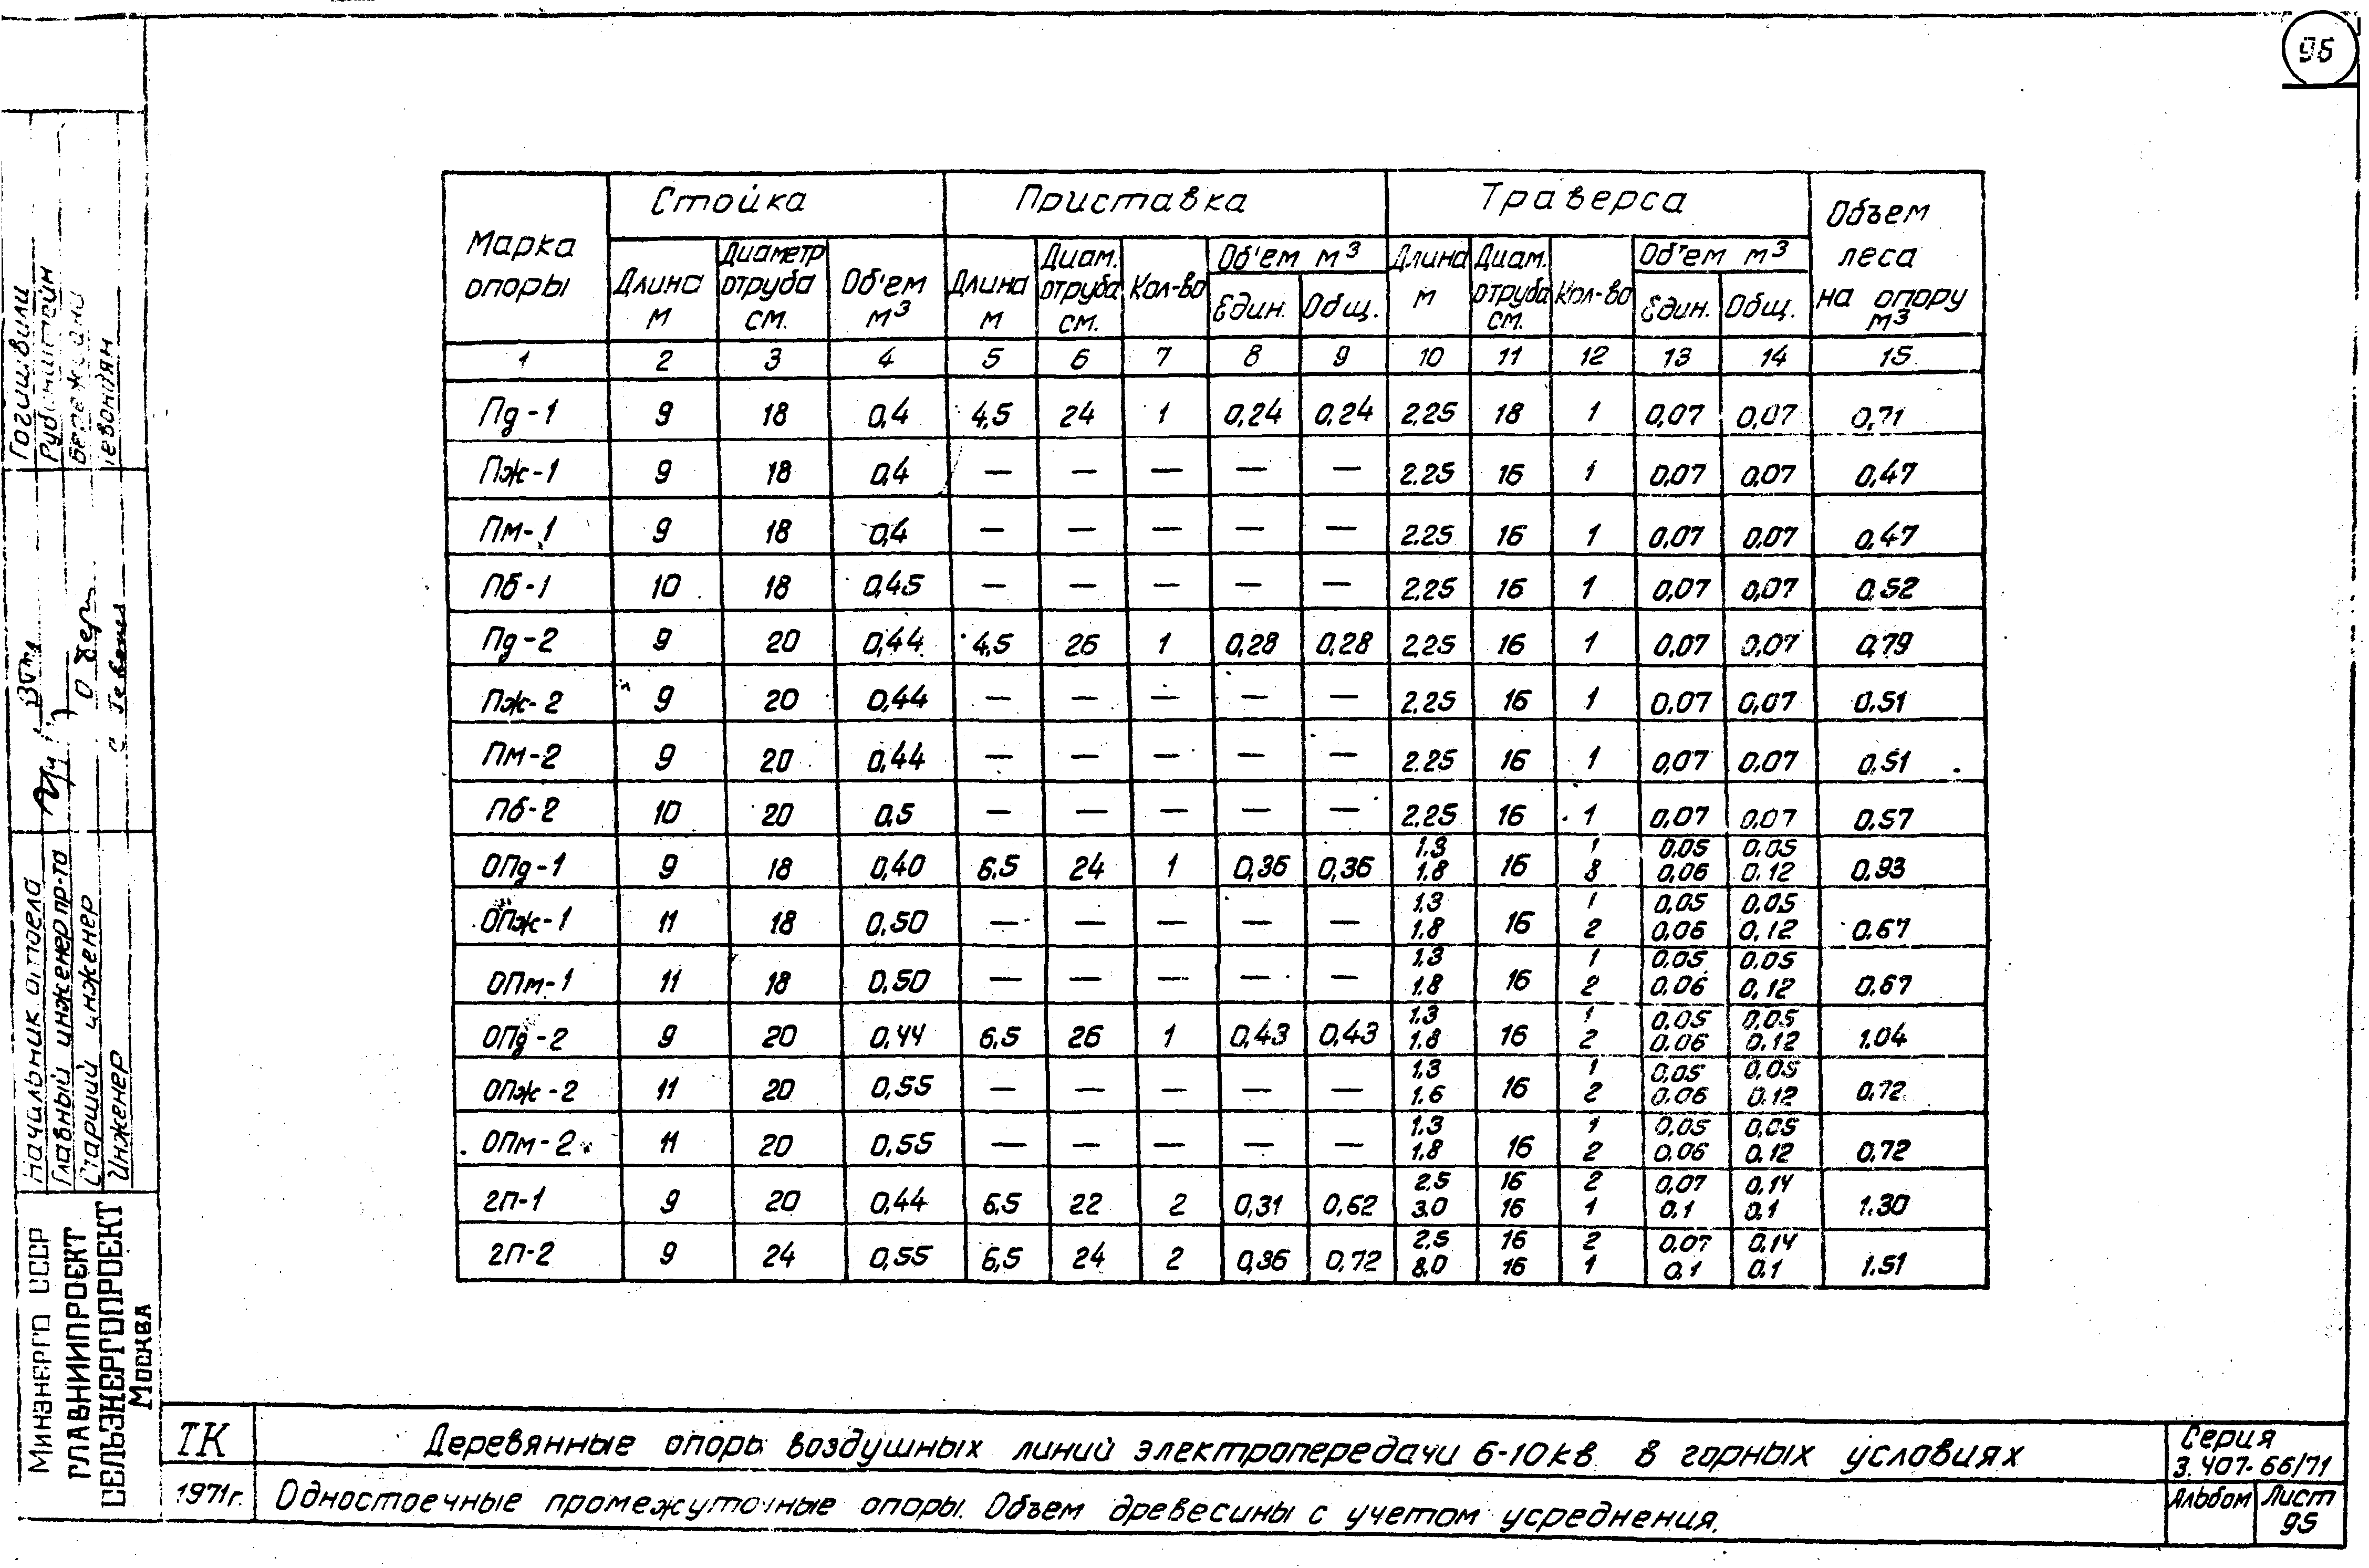 96
Марка опоры | Стойка | Приставка | Траверса | Объем леса на опору м3
Длина м | Диаметр отруба см. | Об'ем м3 | Длина м | Диам. отруба см. | Кол-во | Об'ем м3 | Длина м | Диам. отруба см. | Кол-во | Об'ем м3
Един. | Общ. | Един. | Общ.
1 2 3 4 5 6 7 8 9 10 11 12 13 14 15
Пд-1 9 18 0,4 4,5 24 1 0,24 0,24 2.25 18 1 0,07 0,07 0,71
Пж-1 9 18 0,4 — — — — — 2.25 16 1 0,07 0,07 0,47
Пм-1 9 18 0,4 — — — — — 2.25 16 1 0,07 0.07 0,47
Пб-1 10 18 0,45 — — — — — 2.25 16 1 0,07 0,07 0,52
Пд-2 9 20 0,44 4.5 26 1 0,28 0,28 2,25 16 1 0.07 0.07 0,79
Пж-2 9 20 0,44 — — — — — 2.25 16 1 0.07 0,07 0.51
Пм-2 9 20 0,44 — — — — — 2.25 16 1 0,07 0.07 0.51
Пб-2 10 20 0,5 — — — — — 2.25 16 1 0,07 0,07 0.57
1.3 1 0.05 0.05
ОПд-1 9 18 0,40 6.5 24 1 0,36 0,36 1.8 16 8 0,06 0.12 0.93
1.3 1 0,05 0.05
ОПж-1 11 18 0,50 — — — — — 1.8 16 2 0.06 0.12 0.67
1.3 1 0.05 0.05
ОПм-1 11 18 0.50 — — — — — 1.8 16 2 0.06 0,12 0.67
1.3 1 0.05 0.05
ОПд-2 9 20 0,44 6,5 26 1 0,43 0,43 1.8 16 2 0.06 0.12 1.04
1.3 1 0,05 0.05
ОПж-2 11 20 0,55 — — — — — 1.6 16 2 0.06 0.12 0,72
1.3 1 0,05 0,05
ОПм-2 11 20 0,55 — — — — — 1,8 16 2 0.06 0.12 0.72
2.5 16 2 0,07 0,14
2П-1 9 20 0,44 6,5 22 2 0,31 0,62 3.0 16 1 0.1 0.1 1.30
2,5 16 2 0.07 0,14
2П-2 9 24 0,55 6,5 24 2 0,36 0,72 8.0 16 1 0.1 0.1 1.51
Гогишвили
Рубинштейн
Начальник отдела
Главный инженер пр-та
Старший инженер
Инженер
Минэнерго СССР
ГЛАВНИИПРОЕКТ
СЕЛЬЭНЕРГОПРОЕКТ
Москва
ТК
Деревянные опоры воздушных линий электропередачи 6-10кв в горных условиях
Серия
3.407-66/71
1971г.
Одностоечные промежуточные опоры. Объем древесины с учетом усреднения.
Альбом
Лист
95